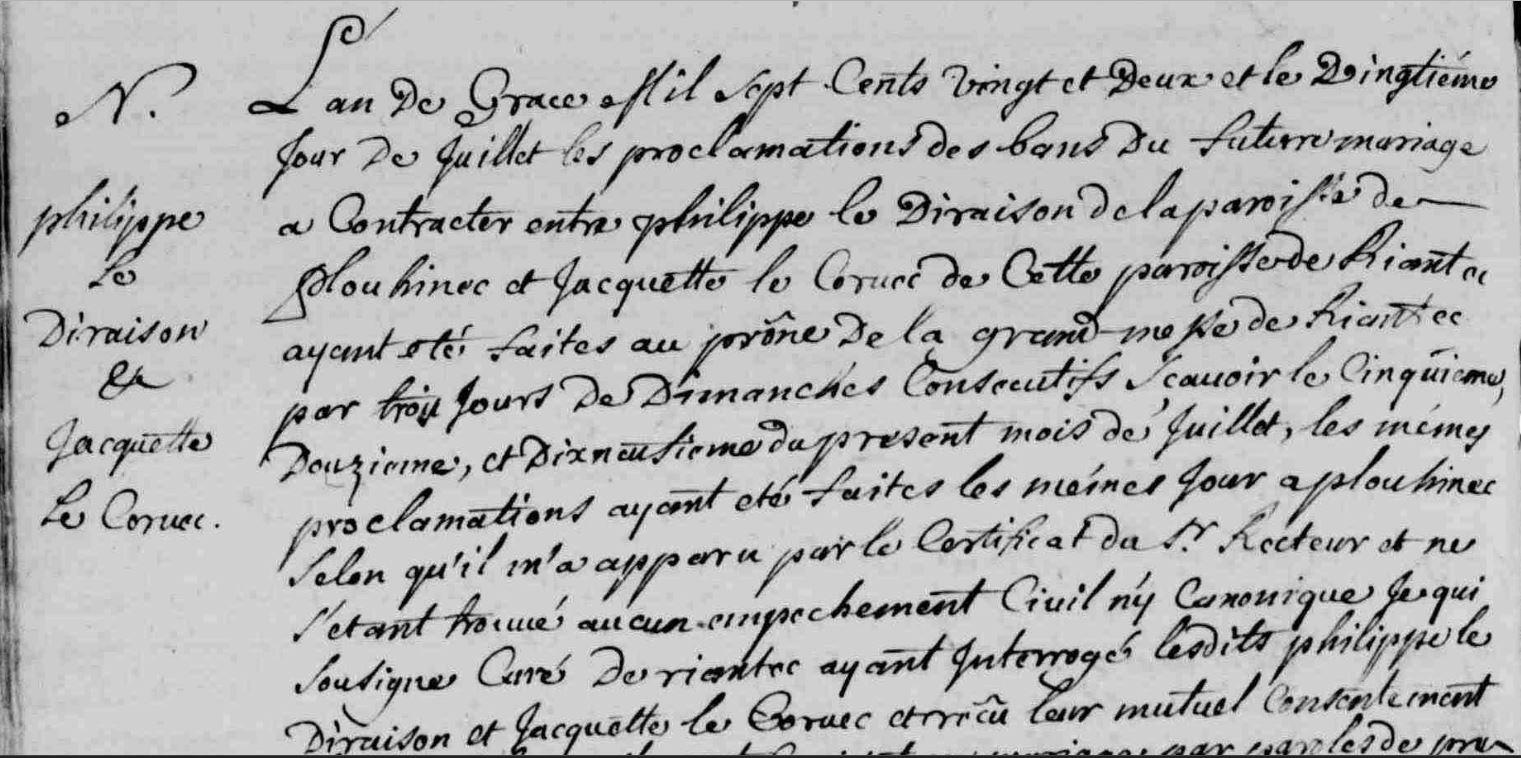 N.
philippe
le
Diraison
&
Jacquette
Le Coruec.
L'an De Grace Mil Sept Cents Vingt et Deux et le Vingtiéme
Jour De Juillet les proclamations des bans Du futurre mariage
a Contracter entre philippe le Diraison de la paroisse de
plouhinec et Jacquette le Coruec de Cette paroisse de Riantec
ayant eté faites au prône De la grand messe de Riantec
par trois Jours De Dimanches Consecutifs Scauoir le Cinquieme,
Douzieme, et Dixneufieme du present mois de Juillet, les mémes
proclamations ayant eté faites les mémes Jour a plouhinec
Selon qu'il m'a apparu par le Certificat du Sr. Recteur et ne
s'etant trouué aucun empechement Civil n'y Canonique Je qui
Sousigne Curé De riantec ayant Interrogé lesdits philippe le
Diraison et Jacquette le Coruec et reçu leur mutuel Consentement
mariage par paroles de pre-